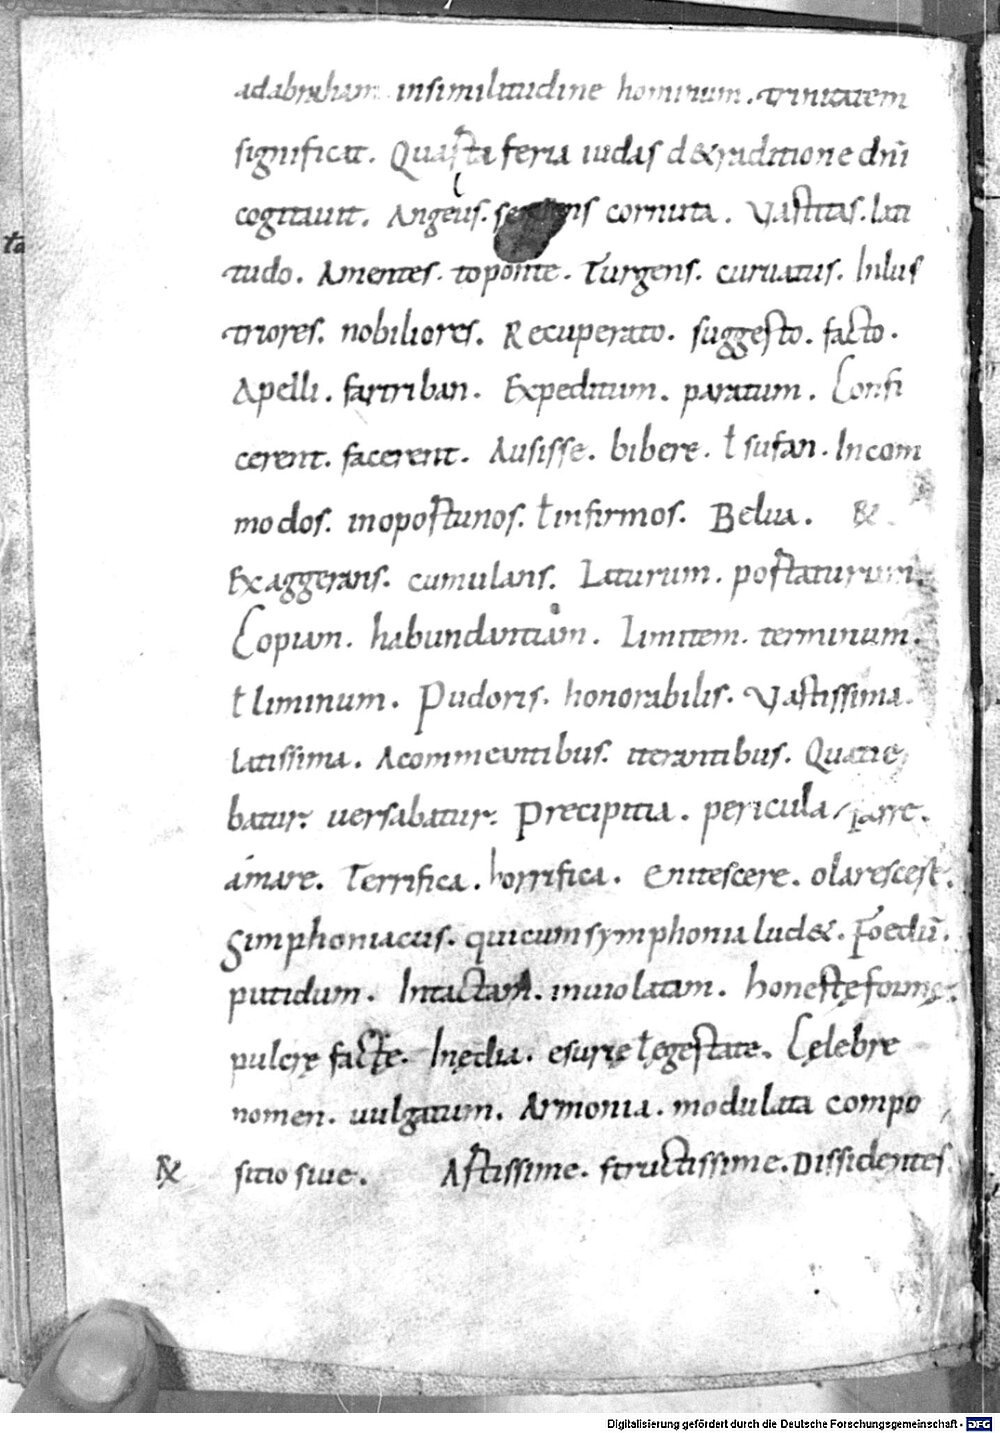 adabraham insimilitudine hominum. trinitatem
significat. Quarta feria iudas d&raditione dñi
cogitauit. Angeus. serpens cornuta. Vastitas. lati
tudo. Amentes. toponte. Turgens. curuatus. Inlus
triores. nobiliores. Recuperato. suggesto. facto.
Apelli. fartriban. Expeditum. paratum. Confi
cerent. facerent. Ausisse. bibere. ł sufan. Incom
modos. inopostunos. ł infirmos. Belua. &.
Exaggerans. cumulans. Laturum. postaturum.
Copiam. habundantiam. Limitem. terminum.
ł liminum. Pudoris. honorabilis. Vastissima.
latissima. Acommeantibus. iterantibus. Quatie
batur. uersabatur. Precipitia. pericula
amare. Terrifica. horrifica. Enitescere. olarescest.
Simphoniacus. quicumsymphonia lud&. Foedū.
putidum. Intactam. inuiolatam. honestę formę.
pulcrę factę. Inędia. esurię ł ęgestate. Cęlebre
nomen. uulgatum. Armonia. modulata compo
& sitio siue. Astissime. structissime. Dissidentes.
ta
Digitalisierung gefördert durch die Deutsche Forschungsgemeinschaft - DFG